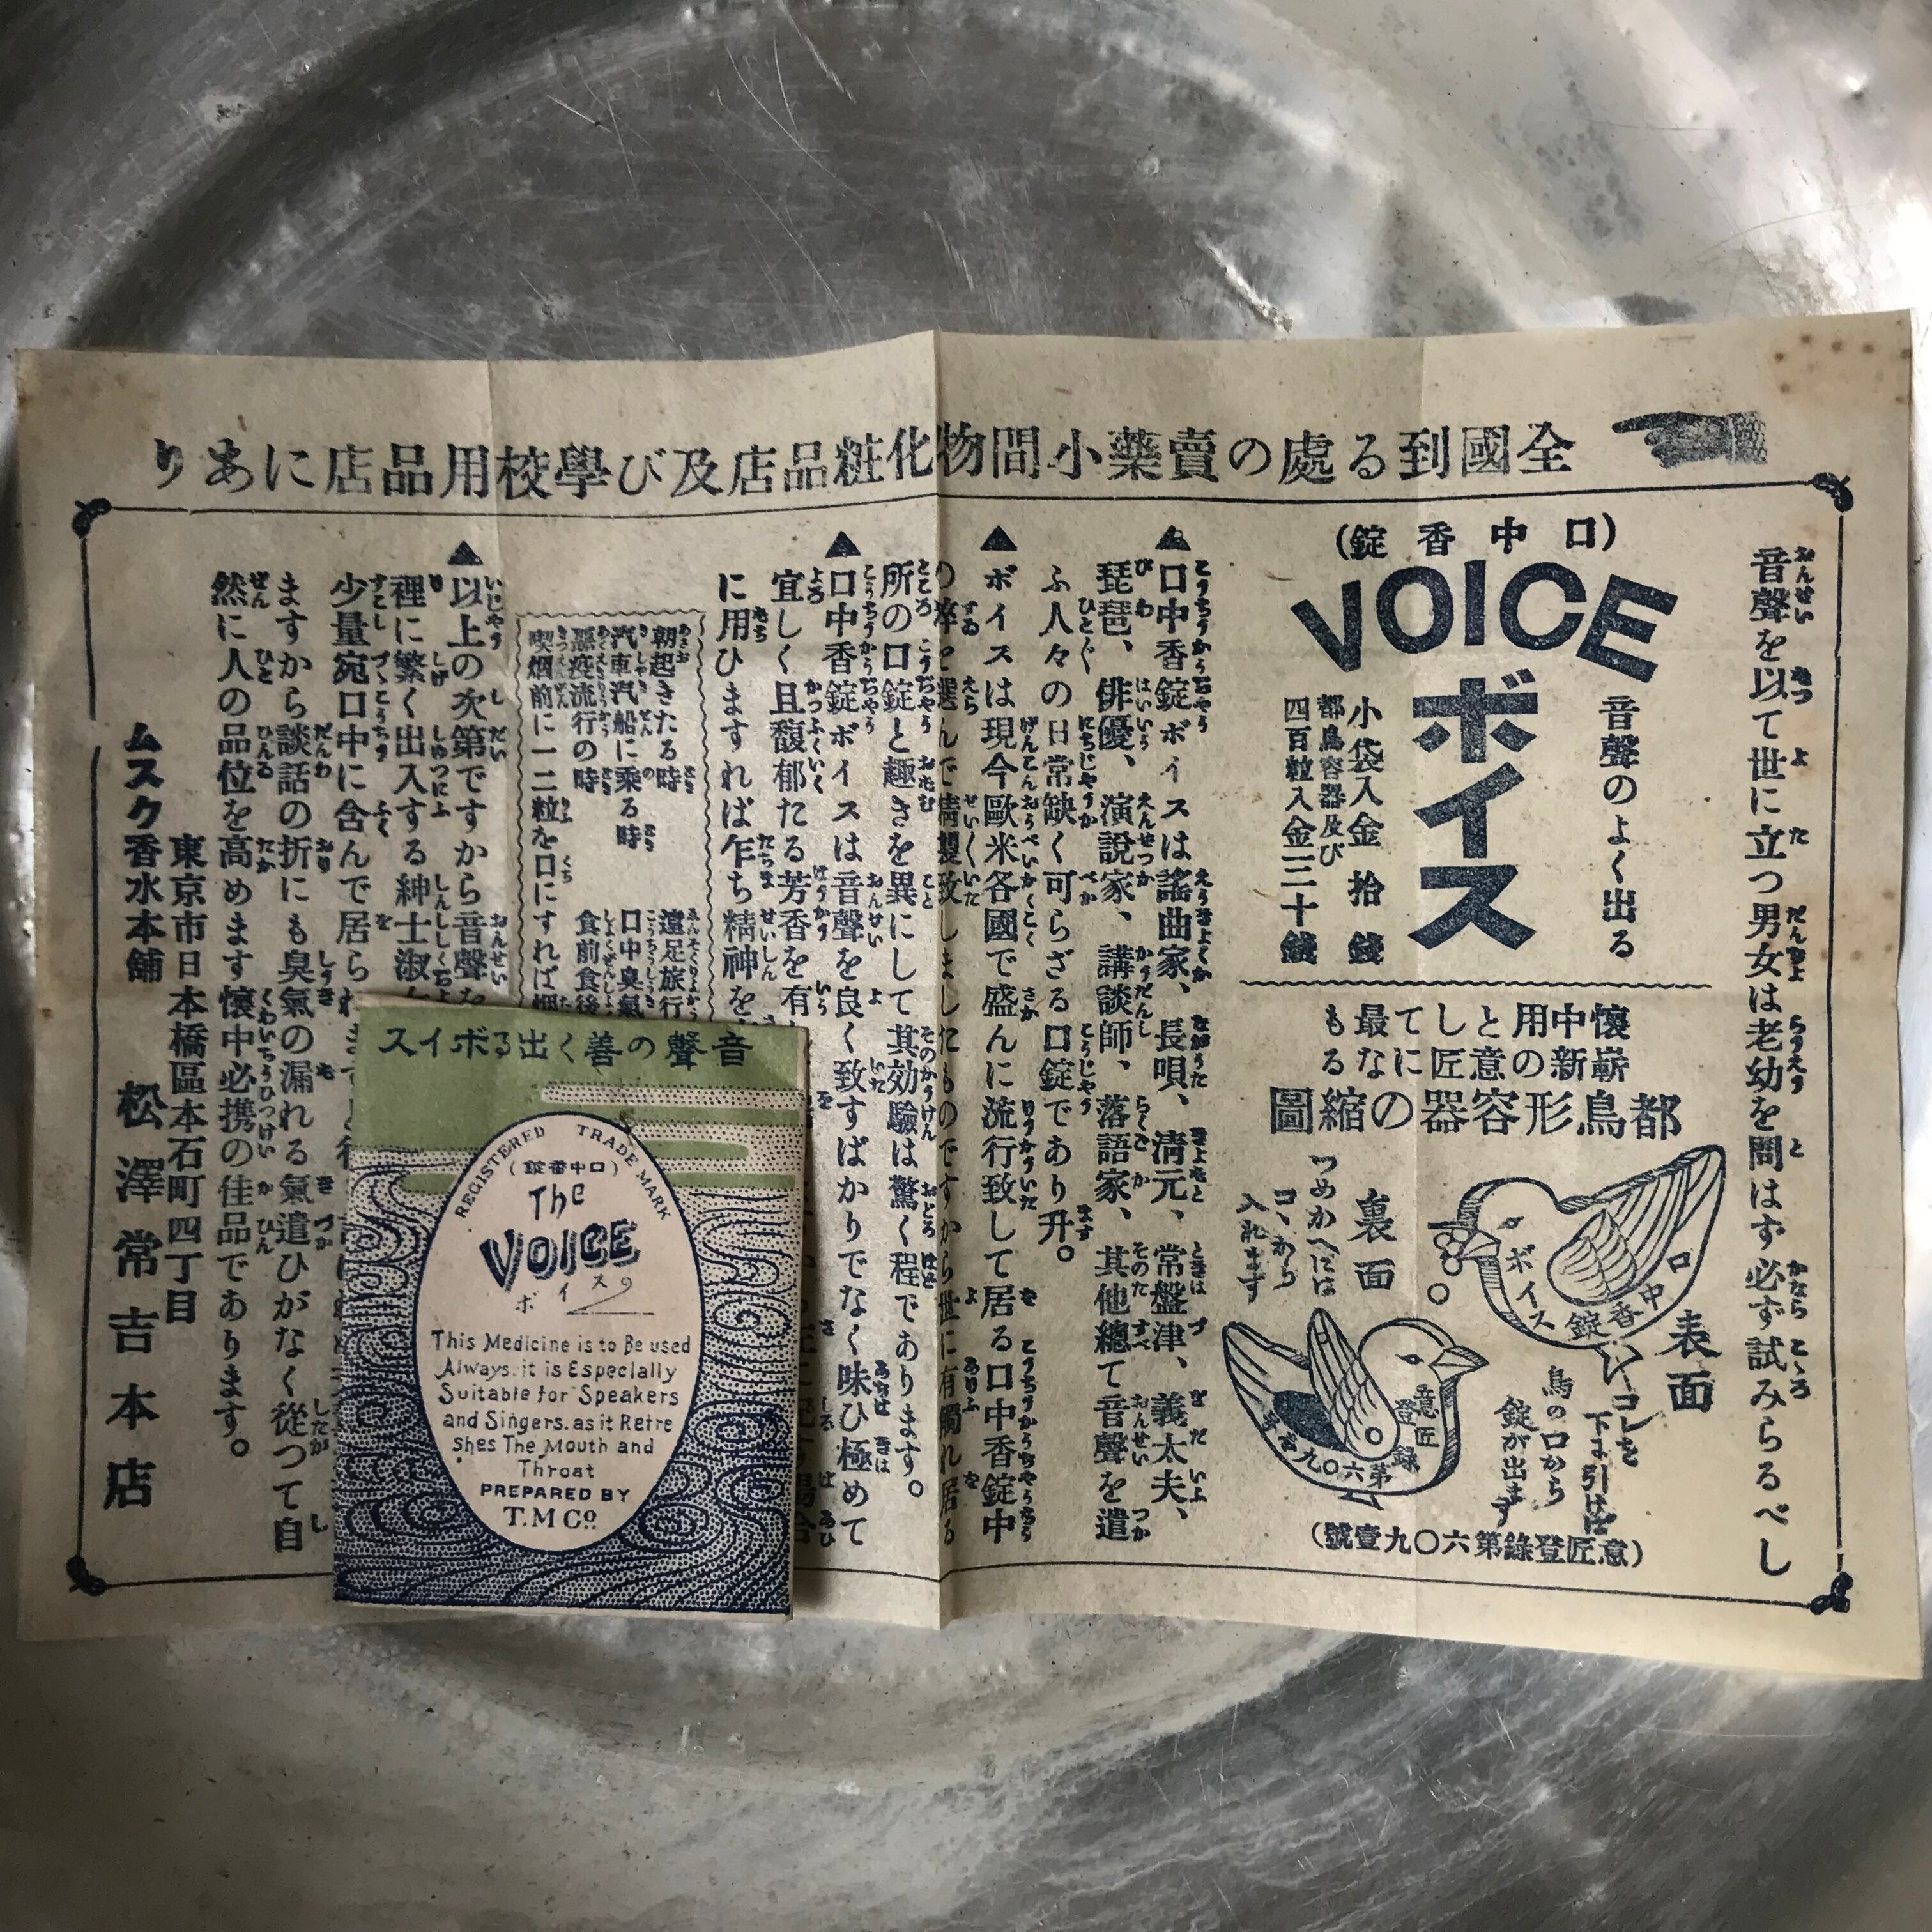 全國到る處の賣藥小間物化粧品店及び學校用品店にあり
音聲を以て世に立つ男女は老幼を問はず必ず試みらるべし
（口中香錠）
VOICE
音聲のよく出る
ボイス
小袋入金拾錢
都鳥容器及び
四百粒入金三十錢
懷中用として最も
嶄新の意匠になる
都鳥形容器の縮圖
表面
ボイス
口中香錠
コレを
下ま引けば
鳥の口から
錠が出ます
裏面
つめかへには
コヽから
入れます
意匠
登録
（意匠登錄第六〇九壹號）
▲口中香錠ボイスは謠曲家、長唄、淸元、常盤津、義太夫、
琵琶、俳優、演說家、講談師、落語家、其他總て音聲を遣
ふ人々の日常缺く可らざる口錠であり升。
▲ボイスは現今歐米各國で盛んに流行致して居る口中香錠中
の粹を選んで精製致しましたものですから世に有觸れ居る
所の口錠と趣きを異にして其効驗は驚く程であります。
▲口中香錠ボイスは音聲を良く致すばかりでなく味ひ極めて
宜しく且馥郁たる芳香を有
に用ひますれば乍ち精神を
朝起きたる時
遠足旅行
汽車汽船に乘る時
口中臭氣
惡疫流行の時
食前食後
喫烟前に一二粒を口にすれば烟
▲以上の次第ですから音聲を
裡に繁く出入する紳士淑
少量宛口中に含んで居ら
ますから談話の折にも臭氣の漏れる氣遣ひがなく從つて自
然に人の品位を高めます懷中必携の佳品であります。
東京市日本橋區本石町四丁目
ムスク香水本舗 松澤常吉本店
音聲の善く出るボイス
REGISTERED TRADE MARK
（口中香錠）
The
VOICE
ボイス
This Medicine is to Be used
Always. it is Especially
Suitable for Speakers
and Singers. as it Refre
shes The Mouth and
Throat
PREPARED BY
T.M Co.